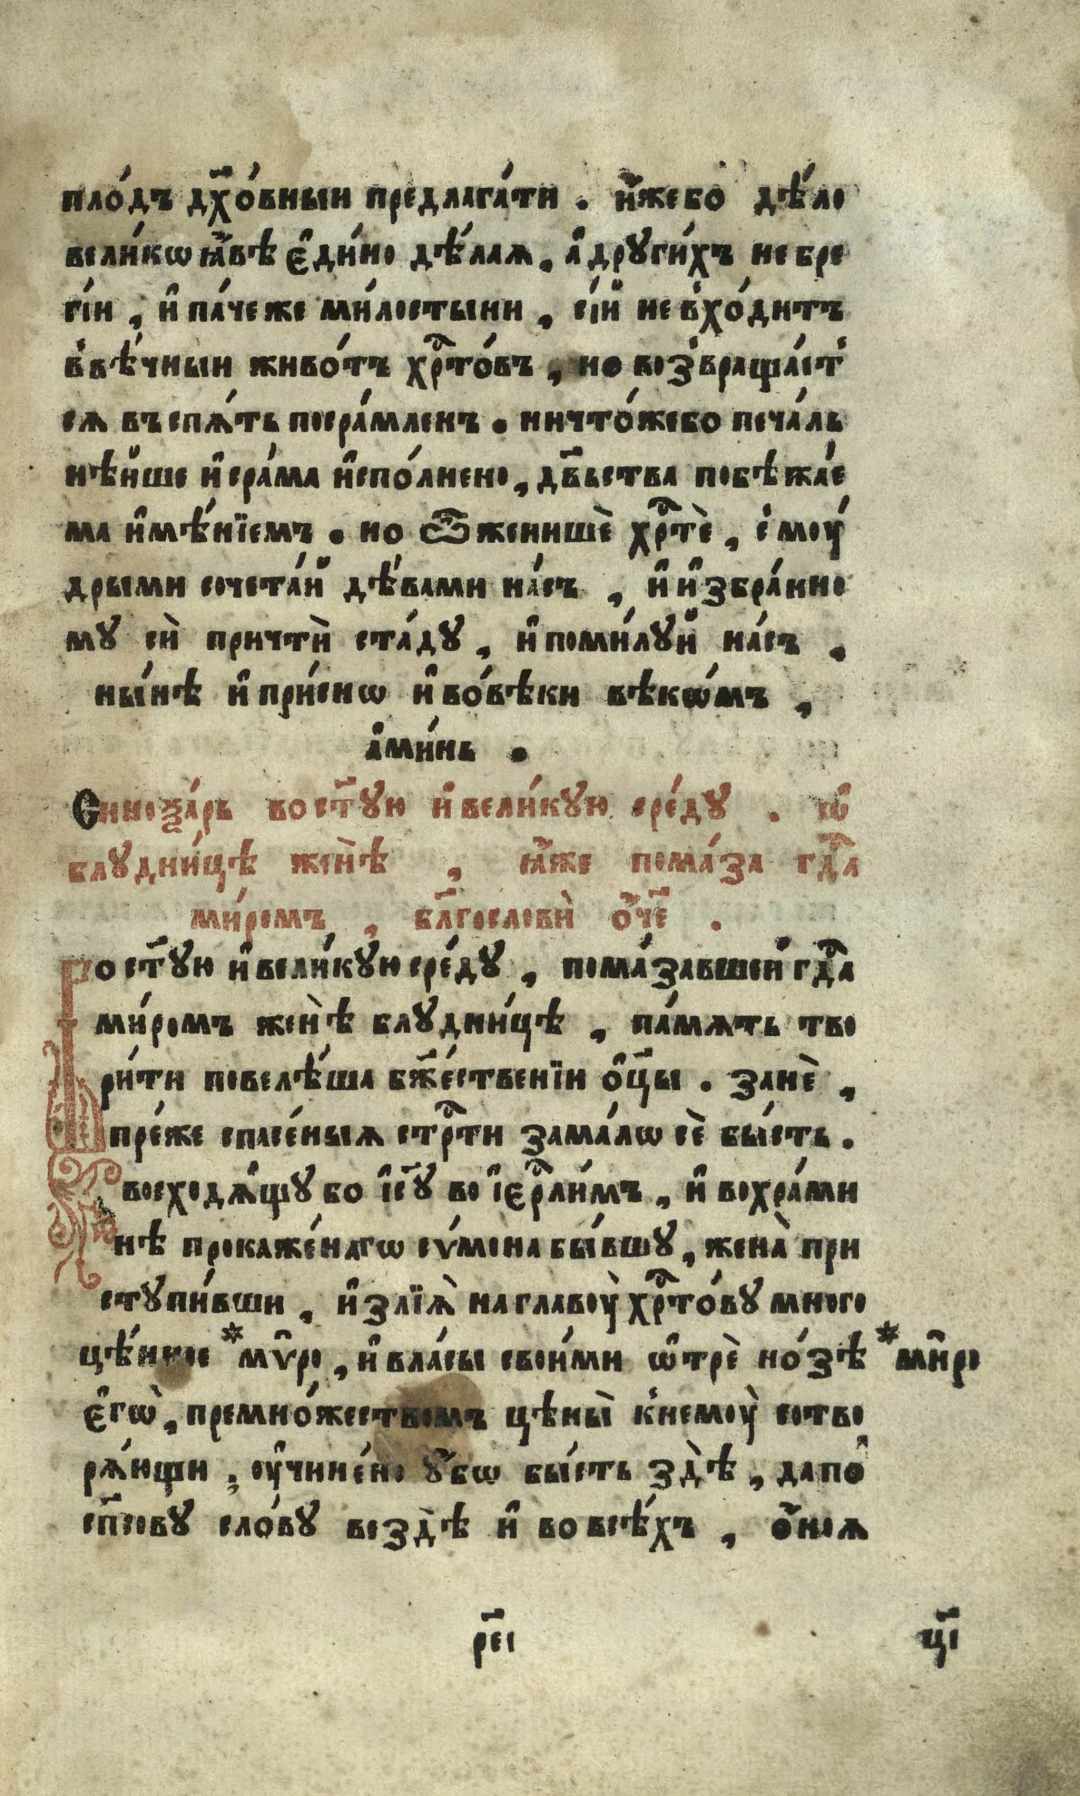 пло́дъ дх҃о́вныи предлага́ти . и҆́жебо дѣ́ло
вели́кѡ ꙗ҆́вѣ є҆ди́но дѣ́лаѧ , а҆ дрꙋги́хъ не бре
гі́и , и҆ па́че же ми́лостыни , сі́й не вхо́дитъ
в вѣ́чныи живо́тъ хрⷭ҇то́въ , но возвраща́ет
сѧ въ спѧ́ть посра́мленъ . ничто́жебо печа́ль
нѣ́йше и҆ сра́ма и҆спо́лнено , дв҃ьства побѣжа́е
ма и҆мѣ́нїемъ . но ѿ женишѐ хрⷭ҇тѐ , с мꙋ́
дрыми сочета́й дѣ́вами на́съ , и҆ и҆збра́нно
мꙋ сѝ причтѝ ста́дꙋ , и҆ поми́лꙋй на́съ ,
ны́нѣ и҆ при́снѡ и҆ во́вѣки вѣкѡ́мъ ,
а҆ми́нь .
Синоѯа́рь во ст҃ꙋю и҆ вели́кꙋю сре́дꙋ . ѡ҆
блꙋдни́цѣ женѣ̀ , ꙗ҆́же пома́за гдⷭ҇а
ми́ромъ , бл҃гословѝ ѻ҆́ч҃е .
Во ст҃ꙋю и҆ вели́кꙋю сре́дꙋ , пома́завшей гдⷭ҇а
ми́ромъ женѣ̀ блꙋдни́цѣ , па́мѧть тво
ри́ти повелѣ́ша бж҃е́ственїи ѻ҆ц҃ы . занѐ ,
пре́же спасе́ныѧ стрⷭ҇ти зама́лѡ сѐ бы́сть .
восходѧ́щꙋ бо і҆с҃ꙋ во і҆єрⷭ҇ли́мъ , и҆ вохра́ми
нѣ прокаже́нагѡ сѵ́мона бы́вшꙋ , жена̀ при
стꙋпи́вши , и҆ злїѧ̀ на главꙋ̀ хрⷭ҇то́вꙋ много
цѣ́нное *мѵ́ро , и҆ вла́сы свои́ми ѡ҆трѐ но́зѣ *ми́ро
є҆гѡ̀ , премно́жеством цѣны̀ к немꙋ̀ сотво
рѧ́ющи , оу҆чине́но ᲂу҆́бѡ бы́сть здѣ̀ , да по
сп҃совꙋ сло́вꙋ вездѣ̀ и҆ во всѣ́хъ , ѻ҆́ноѧ
рс҃і
ц҃і